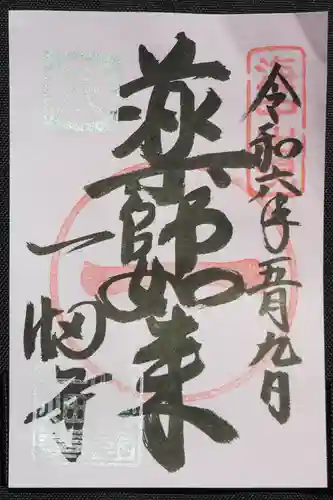 令和六年五月九日
薬師如来
一畑寺